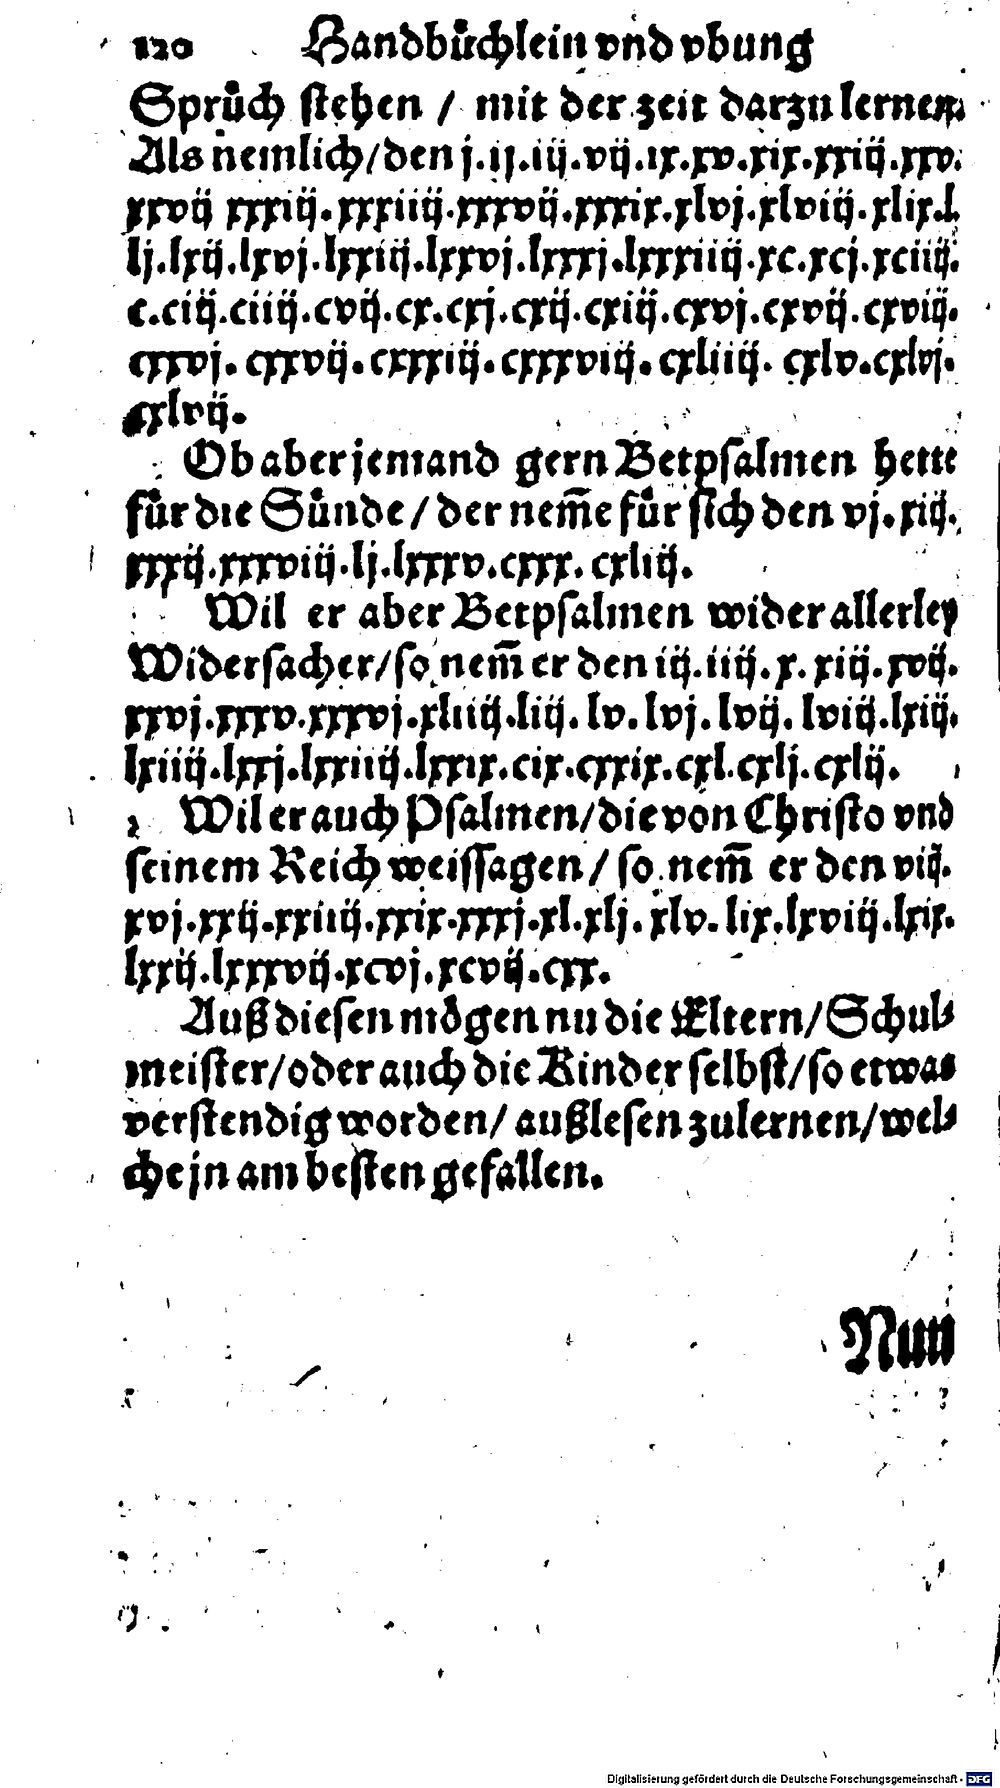 120 Handbuͤchlein vnd vbung
Spruͤch stehen / mit der zeit darzu lernen.
Als nemlich/den j.ij.iij.vij.ix.xv.xix.xxiij.xxv.
xxvij xxxiij.xxxiiij.xxxvij.xxxix.xlvj.xlviij.xlix.l.
lj.lxij.lxvj.lxxiij.lxxvj.lxxxj.lxxxiiij.xc.xcj.xciiij.
c.ciij.ciiij.cvij.cx.cxj.cxij.cxiij.cxvj.cxvij.cxviij.
cxxvj. cxxvij. cxxxiij. cxxxviij. cxliiij. cxlv.cxlvj.
cxlvij.
Ob aber jemand gern Betpsalmen hette
fuͤr die Suͤnde / der nem̃e fuͤr sich den vj.xiij.
xxxij.xxxviij.lj.lxxxv.cxxx. cxliij.
Wil er aber Betpsalmen wider allerley
Widersacher/so nem̃ er den iij.iiij.x.xiij.xvij.
xxvj.xxxv.xxxvj.xliiij.liij. lv. lvj. lvij. lviij.lxiij.
lxiiij.lxxj.lxxiiij.lxxix.cix.cxxix.cxl.cxlj.cxlij.
Wil er auch Psalmen/die von Christo vnd
seinem Reich weissagen / so nem̃ er den viij.
xvj.xxij.xxiiij.xxix.xxxj.xl.xlj. xlv. lix.lxviij.lxix.
lxxij.lxxxvij.xcvj.xcvij.cxx.
Auß diesen moͤgen nu die Eltern/Schul⸗
meister/oder auch die Kinder selbst/so etwas
verstendig worden/ außlesen zulernen/wel⸗
che jn am besten gefallen.
Nun
Digitalisierung gefördert durch die Deutsche Forschungsgemeinschaft - DFG